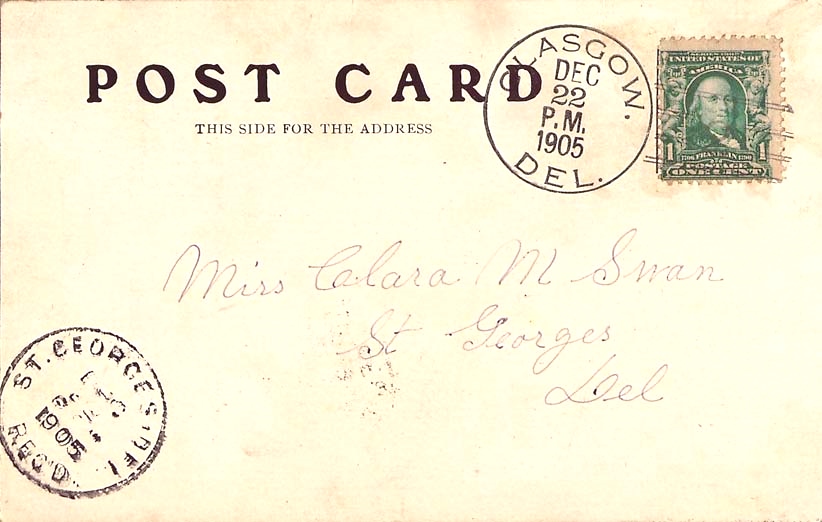 POST CARD
THIS SIDE FOR THE ADDRESS
GLASGOW.
DEC
22
P.M.
1905
DEL.
SERIES 1902
UNITED STATES OF
AMERICA
1 1706 FRANKLIN 1790 1
POSTAGE
ONE CENT
Miss Clara M Swan
St Georges
Del
ST. GEORGES, DEL
1905
REC'D.